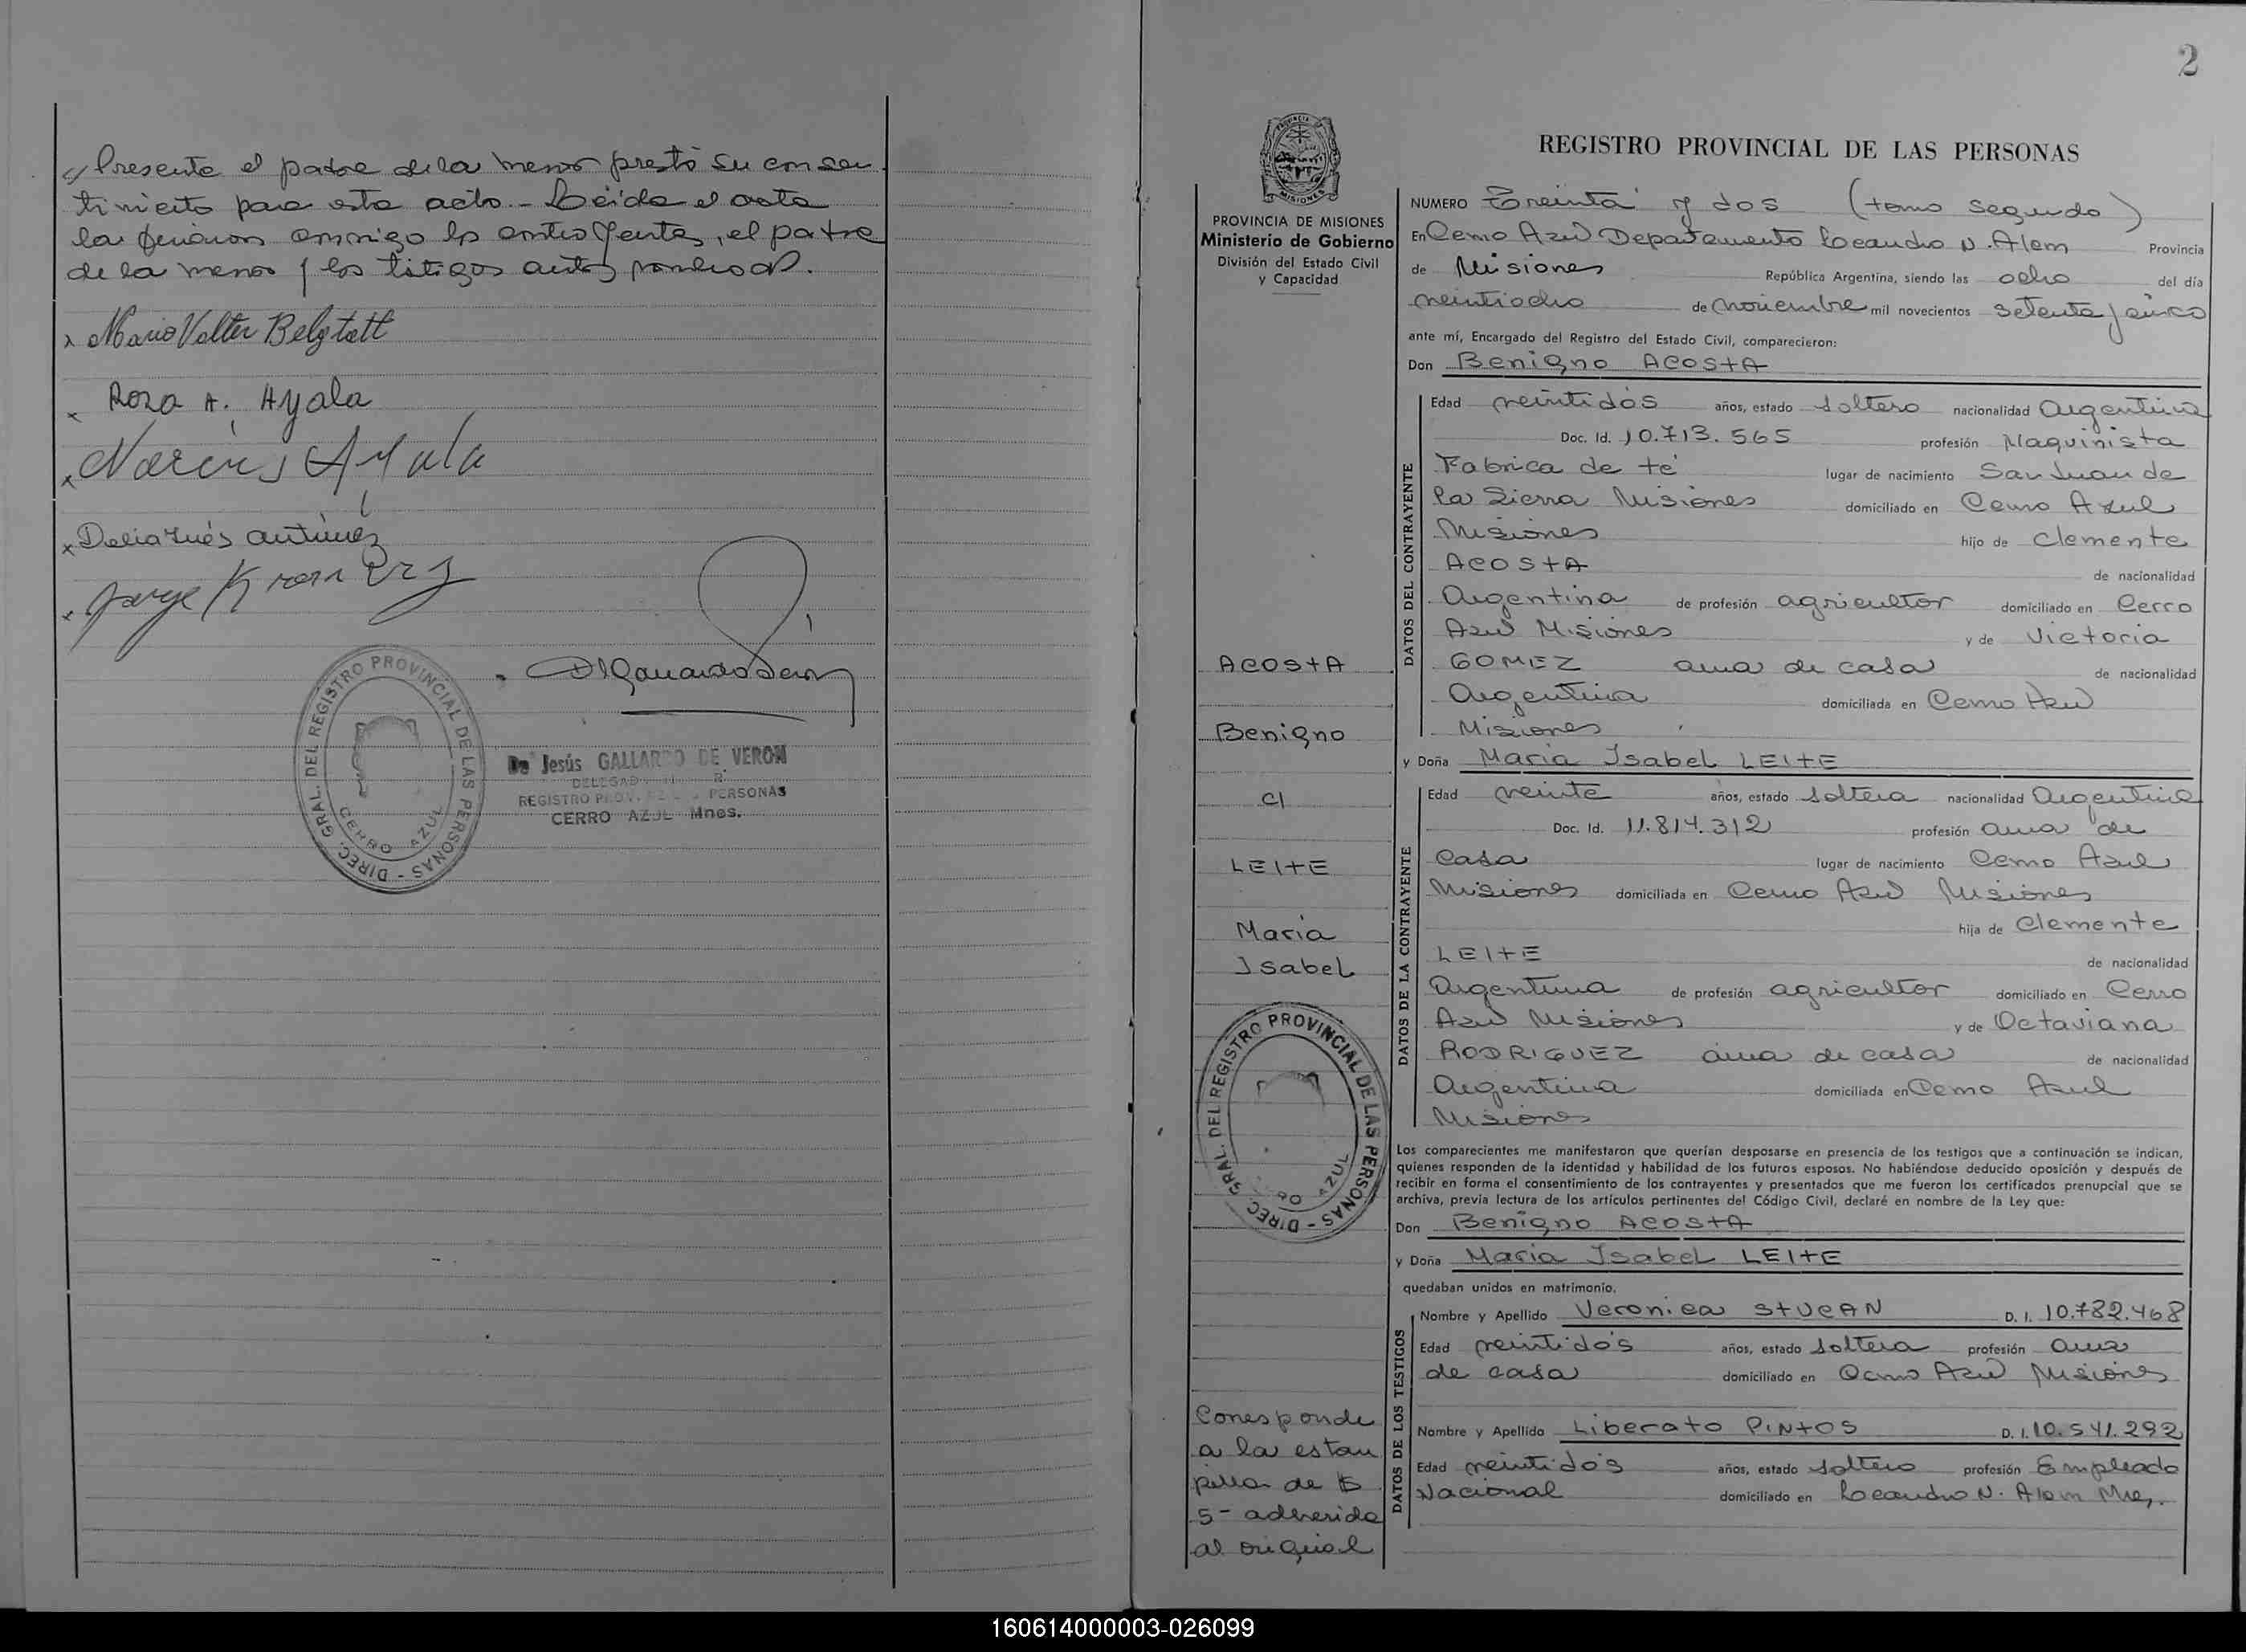 // Presente el padre de la menor prestó su consen
timiento para este acto.- Leída el acta
la firmaron conmigo los contrayentes, el padre
de la menor y los testigos antes nombrados.
x Mario Valter Belgtatt
x Rosa A. Ayala
x Ayala
x Delia Inés Antúnez
x Jorge
DIREC. GRAL. DEL REGISTRO PROVINCIAL DE LAS PERSONAS -
CERRO AZUL
De Jesús GALLARDO DE VERON
REGISTRO PROV. PERSONAS
CERRO AZUL Mnes.
2
PROVINCIA DE MISIONES
Ministerio de Gobierno
División del Estado Civil
y Capacidad
ACOSTA
Benigno
c/
LEITE
María
Isabel
DIREC. GRAL. DEL REGISTRO PROVINCIAL DE LAS PERSONAS -
AZUL
Corresponde
a la estam
pilla de $
5- adherida
al original
REGISTRO PROVINCIAL DE LAS PERSONAS
NUMERO Treinta y dos (tomo segundo)
En Cerro Azul Departamento Leandro N. Alem Provincia
de Misiones República Argentina, siendo las ocho del día
veintiocho de noviembre mil novecientos setenta y cinco
ante mí, Encargado del Registro del Estado Civil, comparecieron:
Don Benigno ACOSTA
DATOS DEL CONTRAYENTE
Edad veintidós años, estado soltero nacionalidad Argentina
Doc. Id. 10.713.565 profesión Maquinista
Fabrica de té lugar de nacimiento San Juan de
la Sierra Misiones domiciliado en Cerro Azul
Misiones hijo de Clemente
ACOSTA de nacionalidad
Argentina de profesión agricultor domiciliado en Cerro
Azul Misiones y de Victoria
GOMEZ ama de casa de nacionalidad
Argentina domiciliada en Cerro Azul
Misiones
y Doña María Isabel LEITE
DATOS DE LA CONTRAYENTE
Edad veinte años, estado soltera nacionalidad Argentina
Doc. Id. 11.814.312 profesión ama de
casa lugar de nacimiento Cerro Azul
Misiones domiciliada en Cerro Azul Misiones
hija de Clemente
LEITE de nacionalidad
Argentina de profesión agricultor domiciliado en Cerro
Azul Misiones y de Octaviana
RODRIGUEZ ama de casa de nacionalidad
Argentina domiciliada en Cerro Azul
Misiones
Los comparecientes me manifestaron que querían desposarse en presencia de los testigos que a continuación se indican,
quienes responden de la identidad y habilidad de los futuros esposos. No habiéndose deducido oposición y después de
recibir en forma el consentimiento de los contrayentes y presentados que me fueron los certificados prenupcial que se
archiva, previa lectura de los artículos pertinentes del Código Civil, declaré en nombre de la Ley que:
Don Benigno ACOSTA
y Doña María Isabel LEITE
quedaban unidos en matrimonio.
DATOS DE LOS TESTIGOS
Nombre y Apellido Veronica STUCAN D. I. 10.782.468
Edad veintidós años, estado soltera profesión ama
de casa domiciliado en Cerro Azul Misiones
Nombre y Apellido Liberato PINTOS D. I. 10.541.292
Edad veintidós años, estado soltero profesión Empleado
Nacional domiciliado en Leandro N. Alem Mnes.
160614000003-026099